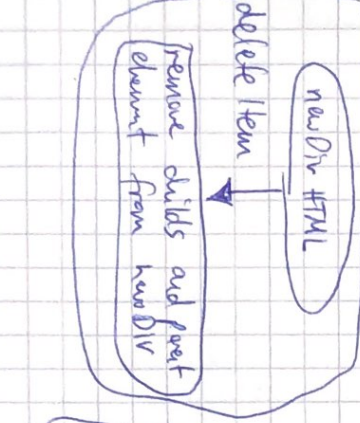 newDiv HTML
delete Item
remove childs and parent
element from newDiv